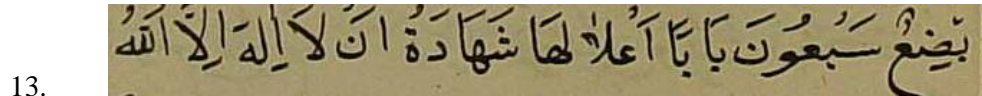 بَِضْعٌ سَبْعُونَ بَا بًَا اَعْلاٰ لهَا شَهَادَةُ اَنْ لَا اِلٰهَ اِلَّا اللّٰهُ
13.